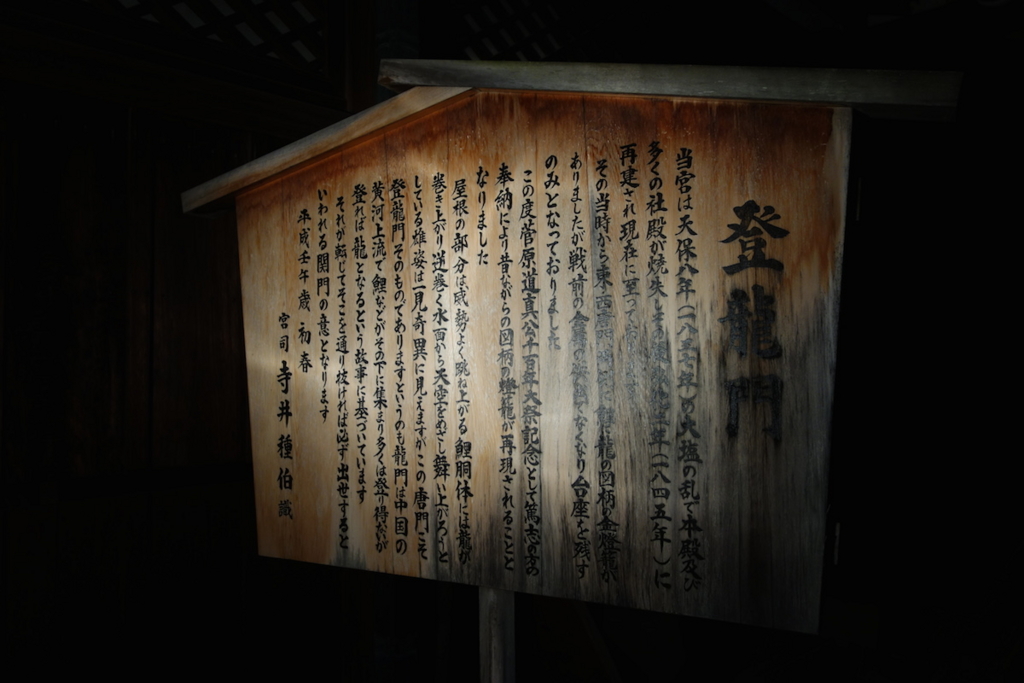 登龍門
当宮は天保八年(一八三七年)の大塩の乱で本殿及び
多くの社殿が焼失し 年(一八四五年)に
再建され現在に至って
その当時から東西 龍の図柄の金燈籠が
ありましたが戦前の金 なくなり台座を残す
のみとなっておりました
この度菅原道真公千百年大祭記念として篤志の方の
奉納により昔ながらの図柄の燈籠が再現されることと
なりました
屋根の部分は威勢よく跳ね上がる鯉胴体には龍が
巻き上がり逆巻く水面から天空をめざし舞い上がろうと
している雄姿は一見奇異に見えますがこの唐門こそ
登龍門そのものでありますというのも龍門は中国の
黄河上流で鯉などがその下に集まり多くは登り得ないが
登れば龍となるという故事に基づいています
それが転じてそこを通り抜ければ必ず出世すると
いわれる関門の意となります
平成壬午歳 初春
宮司 寺井種伯 識